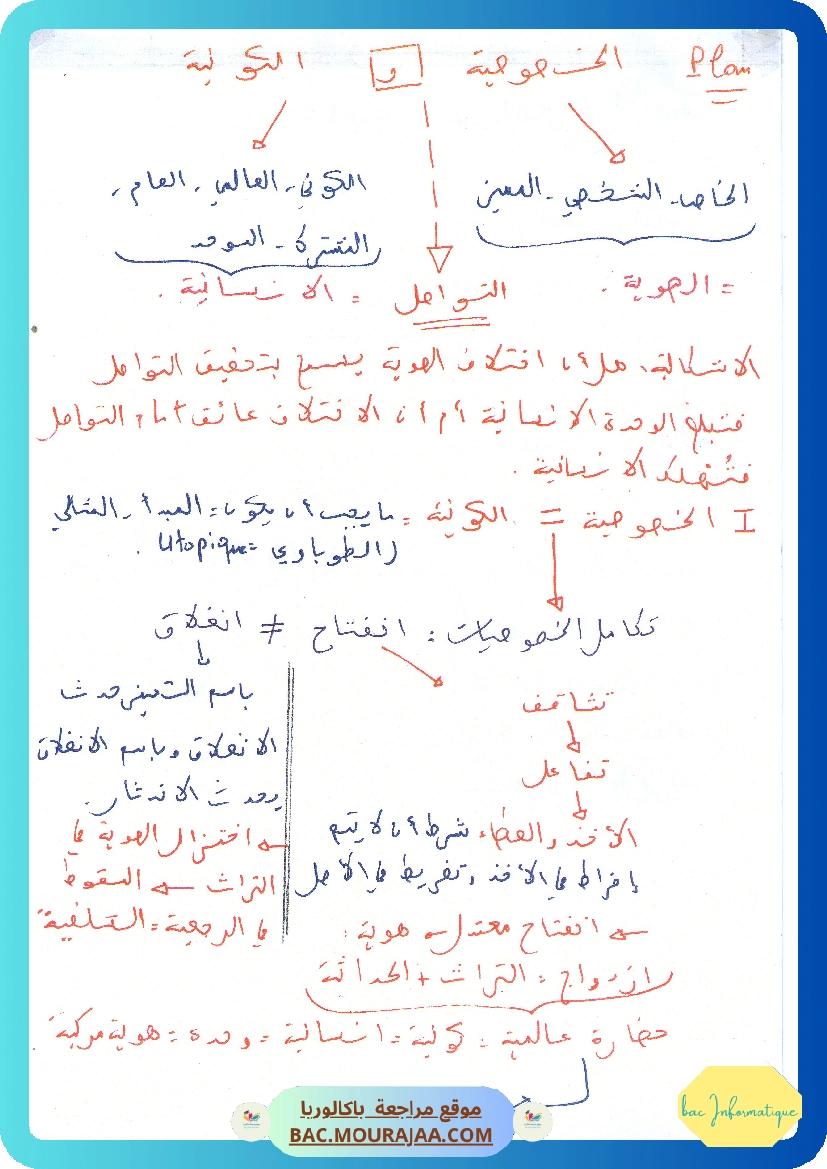 Plan الخصوصية و الكونية
الخاص - الشخصي - المعين
الكوني - العالمي - العام -
المشترك - الموحد
= الهوية .
التواصل = الانسانية .
الاشكالية: هل أن اختلاف الهوية يسمح بتحقيق التواصل
فتبلغ الوحدة الانسانية أم أن الاختلاف عائق أمام التواصل
فتُهلك الانسانية .
I الخصوصية = الكونية = ما يجب أن يكون = المبدأ - المثالي
(الطوباوي = Utopique .
تكامل الخصوصيات : انفتاح ≠ انغلاق
تثاقف
تفاعل
الأخذ والعطاء شرط أن لا يتم
إفراط في الأخذ وتفريط في الأصل
انفتاح معتدل هوية :
ازدواج = التراث + الحداثة
باسم التميز حدث
الانغلاق وباسم الانغلاق
يحدث الاندثار .
اختزال الهوية في
التراث السقوط
في الرجعية = "السلفية"
حضارة عالمية = كونية = انسانية = وحدة = هوية مركبة .
موقع مراجعة باكالوريا
BAC.MOURAJAA.COM
bac Informatique